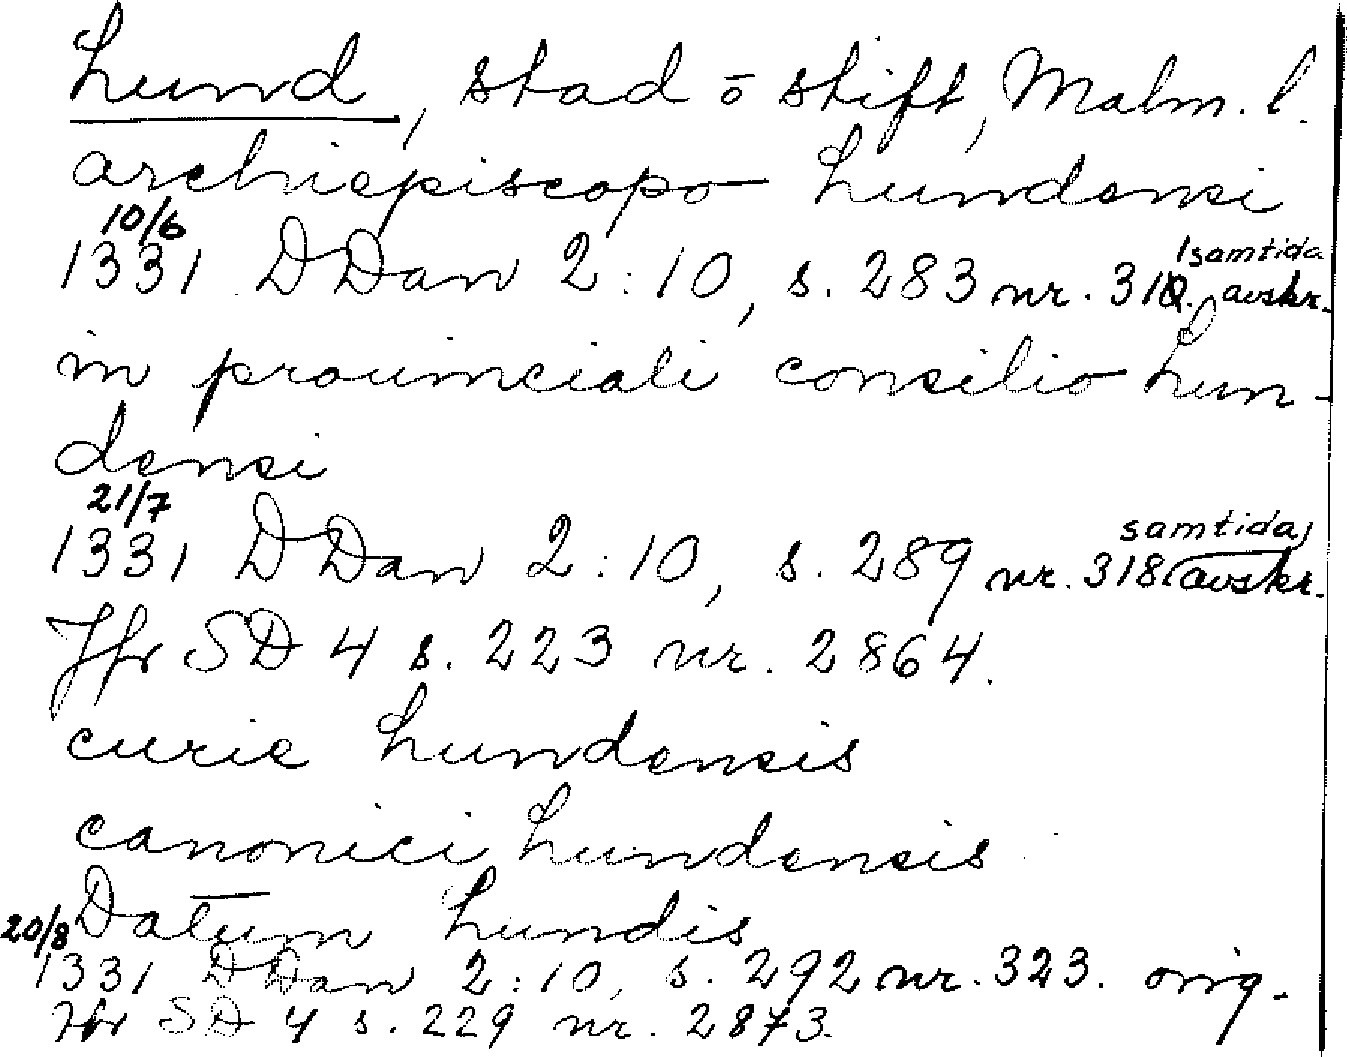 Lund, stad o stift, Malm. l.
archiepiscopo Lundensi
10/6
1331 DDan 2:10, s. 283 nr. 310. samtida avskr.
in prouinciali consilio Lun-
densi
21/7
1331 DDan 2:10, s. 289 nr. 318 samtida avskr.
Jfr SD 4 s. 223 nr. 2864.
curie Lundensis
canonici Lundensis
Datum Lundis
20/8
1331 DDan 2:10, s. 292 nr. 323. orig.
Jfr SD 4 s. 229 nr. 2873.